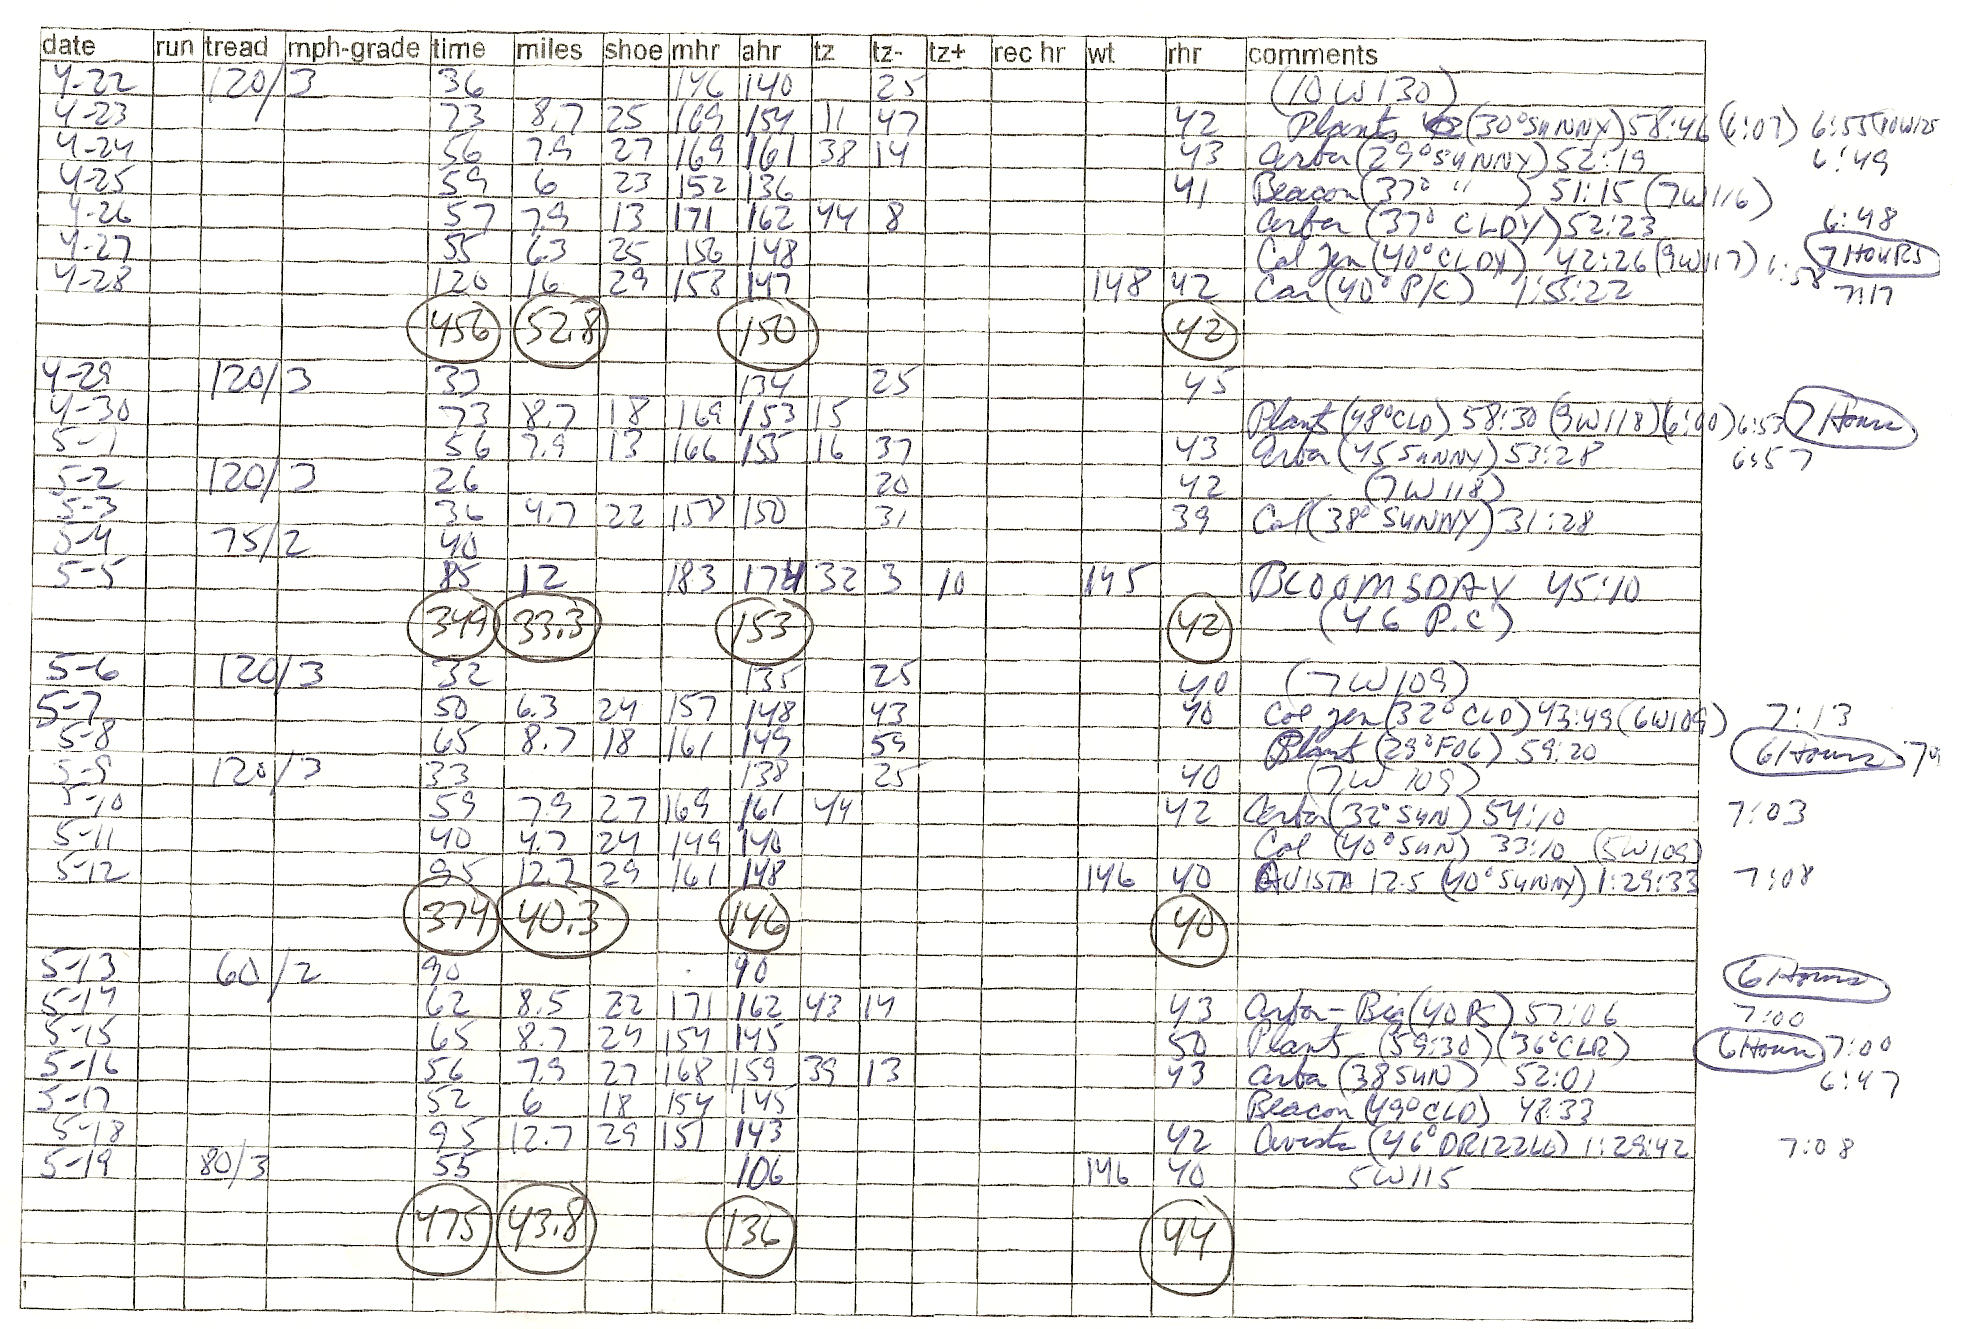 date run tread mph-grade time miles shoe mhr ahr tz tz- tz+ rec hr wt rhr comments
4-22 120/3 36 146 140 25 (10W130)
4-23 73 8.7 25 169 154 11 47 42 Plants (30° SUNNY) 58:46 (6:07) 6:55 (10W125
4-24 56 7.9 27 169 161 38 14 43 Arbor (29° SUNNY) 52:19 6:49
4-25 59 6 23 152 136 41 Beacon (37° " ) 51:15 (7W116)
4-26 57 7.9 13 171 162 44 8 Arbor (37° CLDY) 52:23 6:48
4-27 55 6.3 25 156 148 Col Jen (40° CLDY) 42:26 (9W117) 7 HOURS
4-28 120 16 29 153 147 148 42 Car (40° P/C) 1:55:22 6:58 7:17
456 52.8 150 42
4-29 120/3 33 134 25 45
4-30 73 8.7 18 169 153 15 Plant (48° CLD) 58:30 (9W118) (6:00) 6:53 7 Hours
5-1 56 7.9 13 166 155 16 37 43 Arbor (45 SUNNY) 53:28 6:57
5-2 120/3 26 20 42 (7W118)
5-3 36 4.7 22 158 150 31 39 Col (38° SUNNY) 31:28
5-4 75/2 40
5-5 85 12 183 174 32 3 10 145 BLOOMSDAY 45:10
349 33.3 153 42 (46 P.C)
5-6 120/3 32 135 25 40 (7W109)
5-7 50 6.3 24 157 148 43 40 Col Jen (32° CLD) 43:49 (6W109) 7:13
5-8 65 8.7 18 161 149 59 Plant (29° FOG) 59:20 6 Hours
5-9 120/3 33 138 25 40 (7W109)
5-10 59 7.9 27 169 161 44 42 Arbor (32° SUN) 54:10 7:03
5-11 40 4.7 24 149 140 Col (40° SUN) 33:10 (5W109)
5-12 95 12.7 29 161 148 146 40 AVISTA 12.5 (40° SUNNY) 1:29:33 7:08
374 40.3 146 40
5-13 60/2 90 90 6 Hours
5-14 62 8.5 22 171 162 43 14 43 Arbor-Bea (40 PS) 57:06 7:00
5-15 65 8.7 24 154 145 50 Plant (59:30) (36° CLR) 6 Hours 7:00
5-16 56 7.9 27 168 159 39 13 43 Arbor (38 SUN) 52:01 6:47
5-17 52 6 18 154 145 Beacon (49° CLD) 48:33
5-18 95 12.7 29 151 143 42 Avista (46° DRIZZLE) 1:29:42 7:08
5-19 80/3 55 106 146 40 5W115
475 43.8 136 44